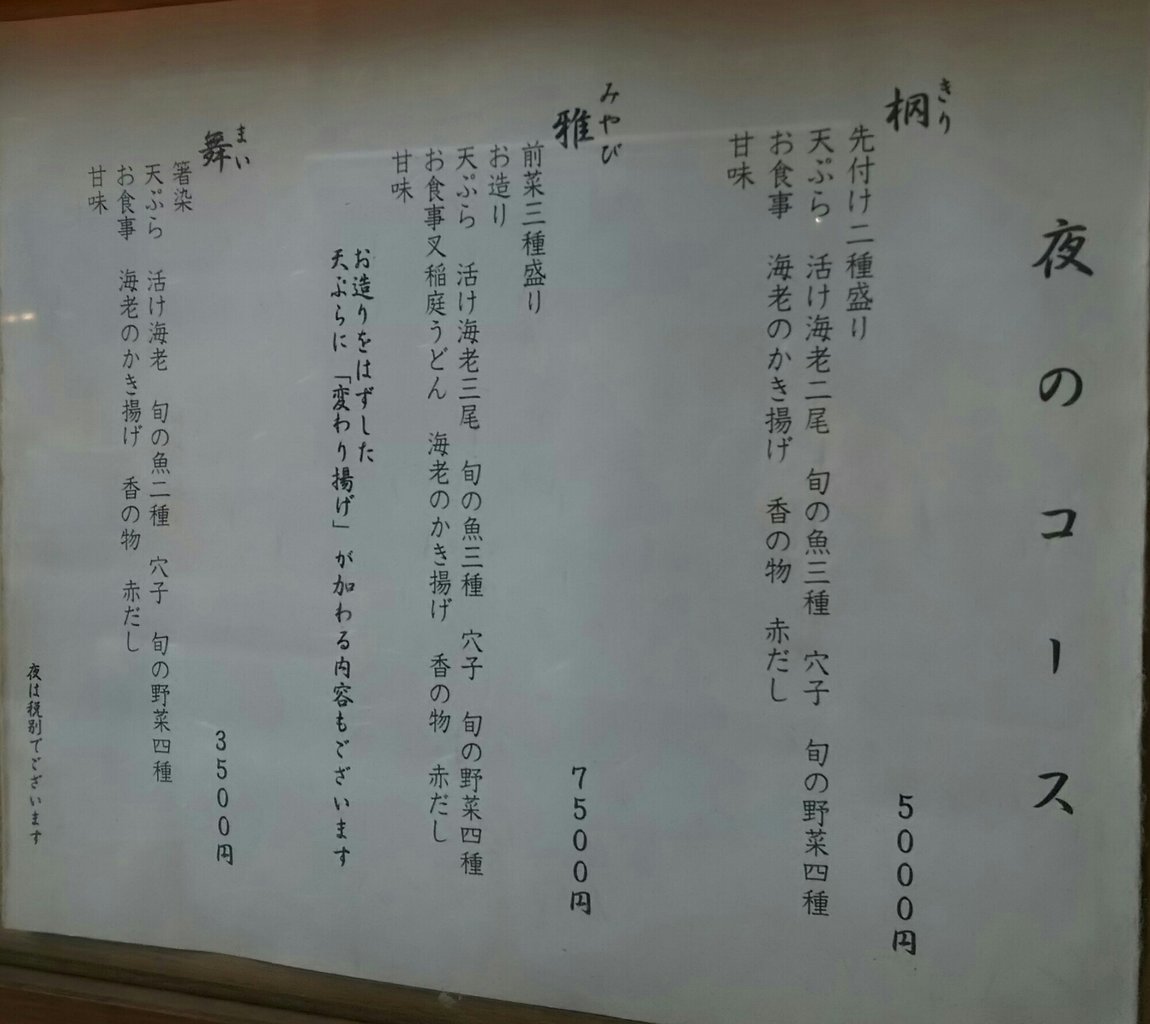 夜のコース
きり
桐 5000円
先付け二種盛り
天ぷら 活け海老二尾 旬の魚三種 穴子 旬の野菜四種
お食事 海老のかき揚げ 香の物 赤だし
甘味
みやび
雅 7500円
前菜三種盛り
お造り
天ぷら 活け海老三尾 旬の魚三種 穴子 旬の野菜四種
お食事又稲庭うどん 海老のかき揚げ 香の物 赤だし
甘味
お造りをはずした
天ぷらに「変わり揚げ」が加わる内容もございます
まい
舞 3500円
箸染
天ぷら 活け海老 旬の魚二種 穴子 旬の野菜四種
お食事 海老のかき揚げ 香の物 赤だし
甘味
夜は税別でございます